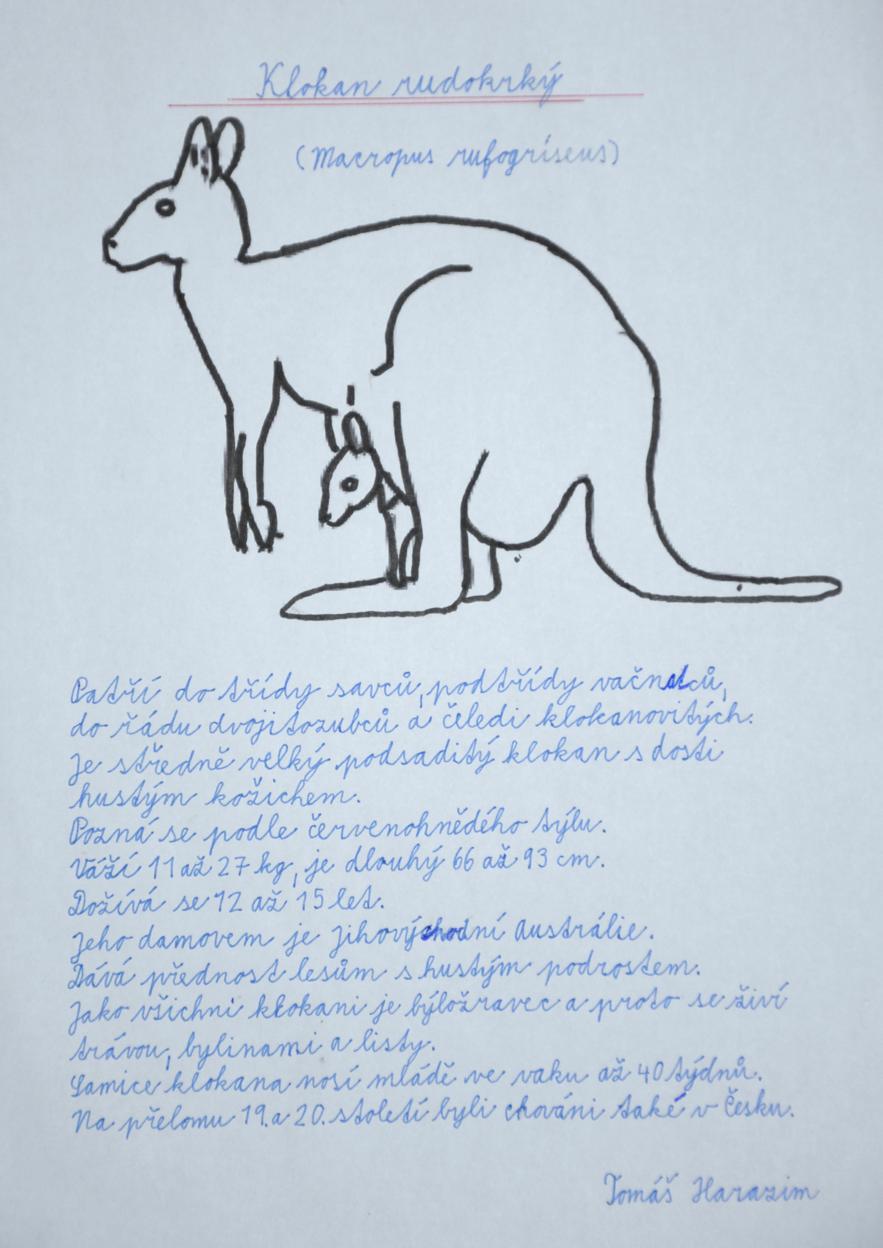 Klokan rudokrký
(Macropus rufogriseus)
Patří do třídy savců, podtřídy vačnatců,
do řádu dvojitozubců a čeledi klokanovitých.
Je středně velký podsaditý klokan s dosti
hustým kožichem.
Pozná se podle červenohnědého týlu.
Váží 11 až 27 kg, je dlouhý 66 až 93 cm.
Dožívá se 12 až 15 let.
Jeho damovem je Jihovýchodní Austrálie.
Dává přednost lesům s hustým podrostem.
Jako všichni klokani je býložravec a proto se živí
trávou, bylinami a listy.
Samice klokana nosí mládě ve vaku až 40 týdnů.
Na přelomu 19. a 20. století byli chováni také v Česku.
Tomáš Harazim